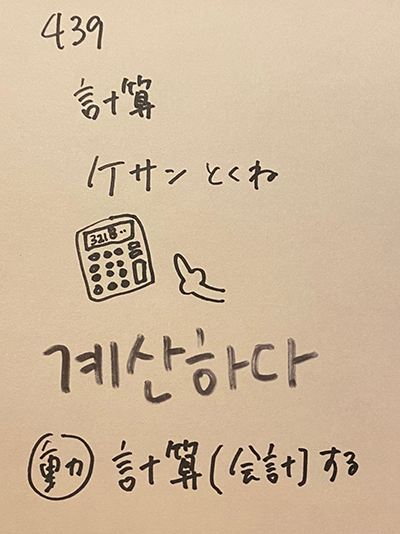 439
計算
ケサンとくね
3218..
계산하다
動 計算(会計)する